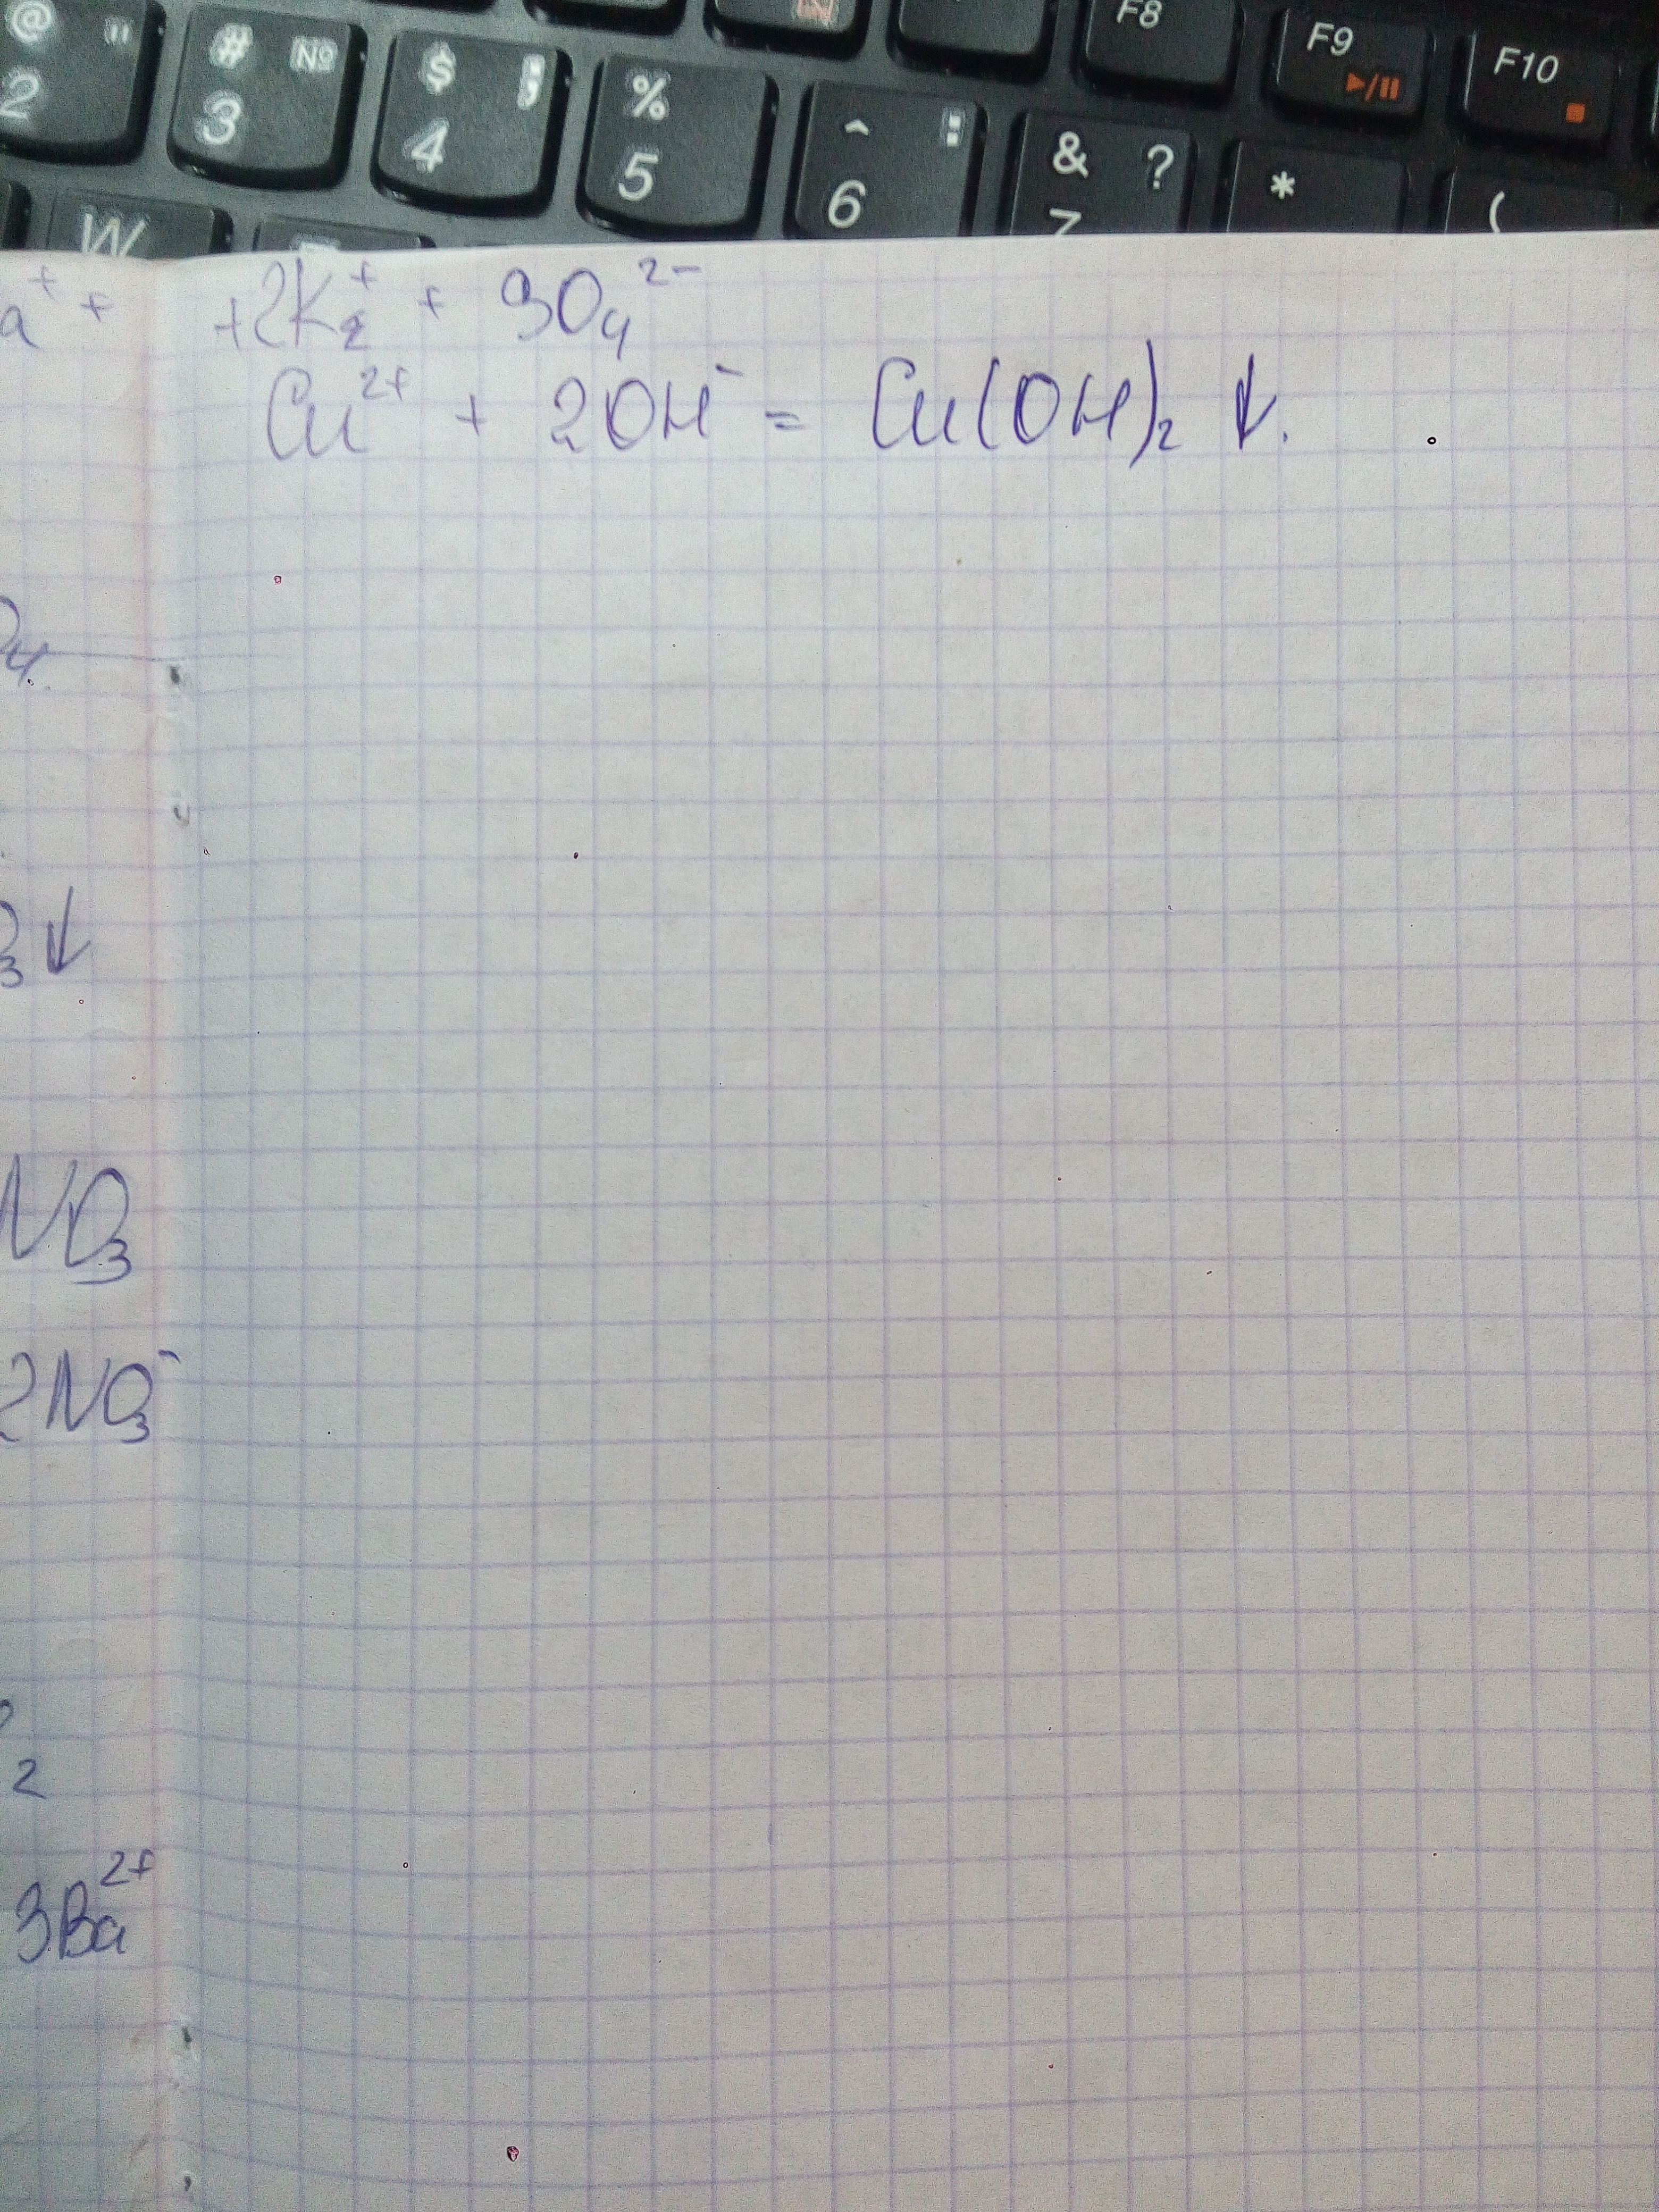 @ "
2
# №
3
$ ;
4
%
5
^ :
6
& ?
7
*
(
F8
F9
F10
W
a⁺ +
+2K₂⁺ + SO₄²⁻
Cu²⁺ + 2OH⁻ = Cu(OH)₂ ↓.
O₄.
₃↓
NO₃
2NO₃⁻
2
3Ba²⁺